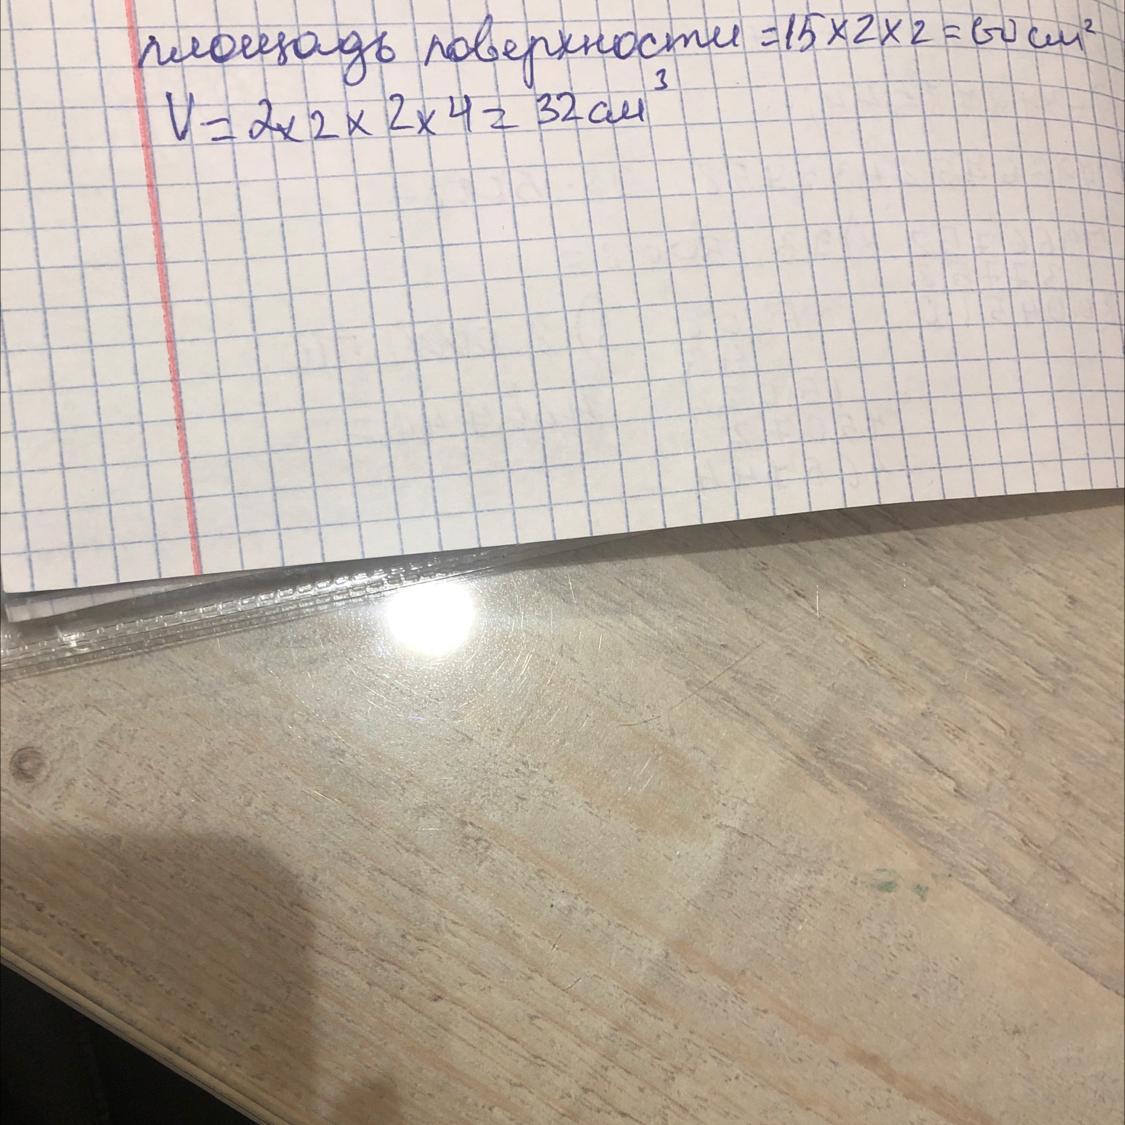 площадь поверхности = 15 x 2 x 2 = 60 см²
V = 2 x 2 x 2 x 4 = 32 см³